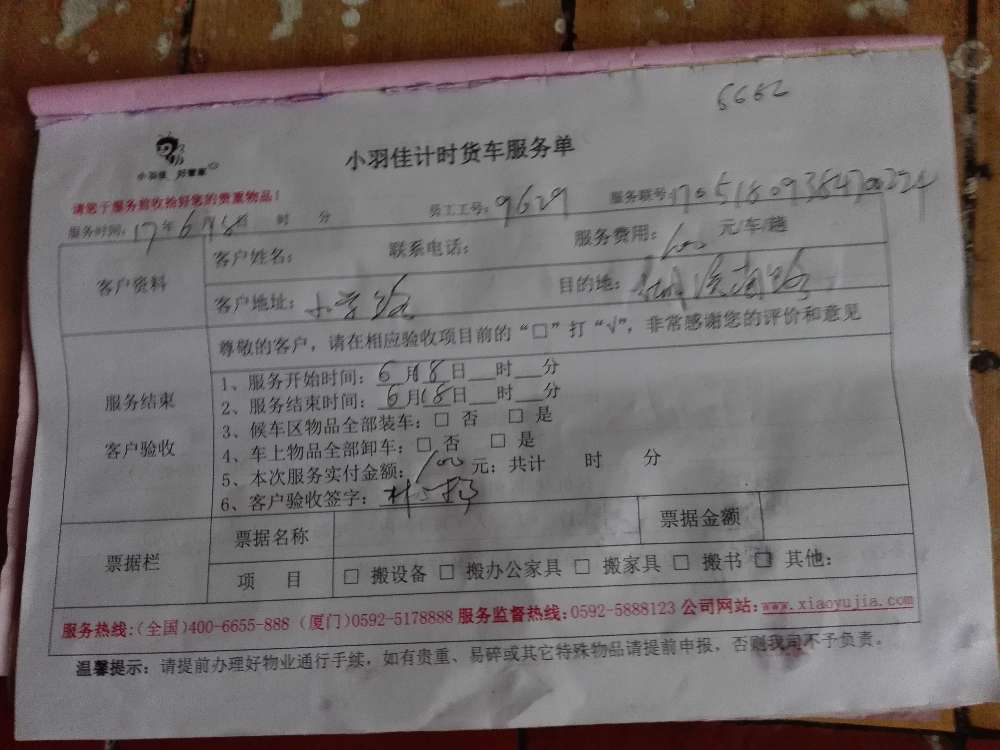 6662
小羽佳 好管家
小羽佳计时货车服务单
请您于服务前收拾好您的贵重物品！
服务时间：17年6月18日 时 分 员工工号：9629 服务联号：
客户资料
客户姓名： 联系电话： 服务费用：100 元/车/趟
客户地址： 目的地：
尊敬的客户，请在相应验收项目前的“□”打“√”，非常感谢您的评价和意见
服务结束
客户验收
1、服务开始时间：6月18日__时__分
2、服务结束时间：6月18日__时__分
3、候车区物品全部装车：□ 否 □ 是
4、车上物品全部卸车：□ 否 □ 是
5、本次服务实付金额：100元；共计 时 分
6、客户验收签字：
票据栏
票据名称 票据金额
项 目 □ 搬设备 □ 搬办公家具 □ 搬家具 □ 搬书 □ 其他：
服务热线：(全国)400-6655-888 (厦门)0592-5178888 服务监督热线：0592-5888123 公司网站：www.xiaoyujia.com
温馨提示：请提前办理好物业通行手续，如有贵重、易碎或其它特殊物品请提前申报，否则我司不予负责。